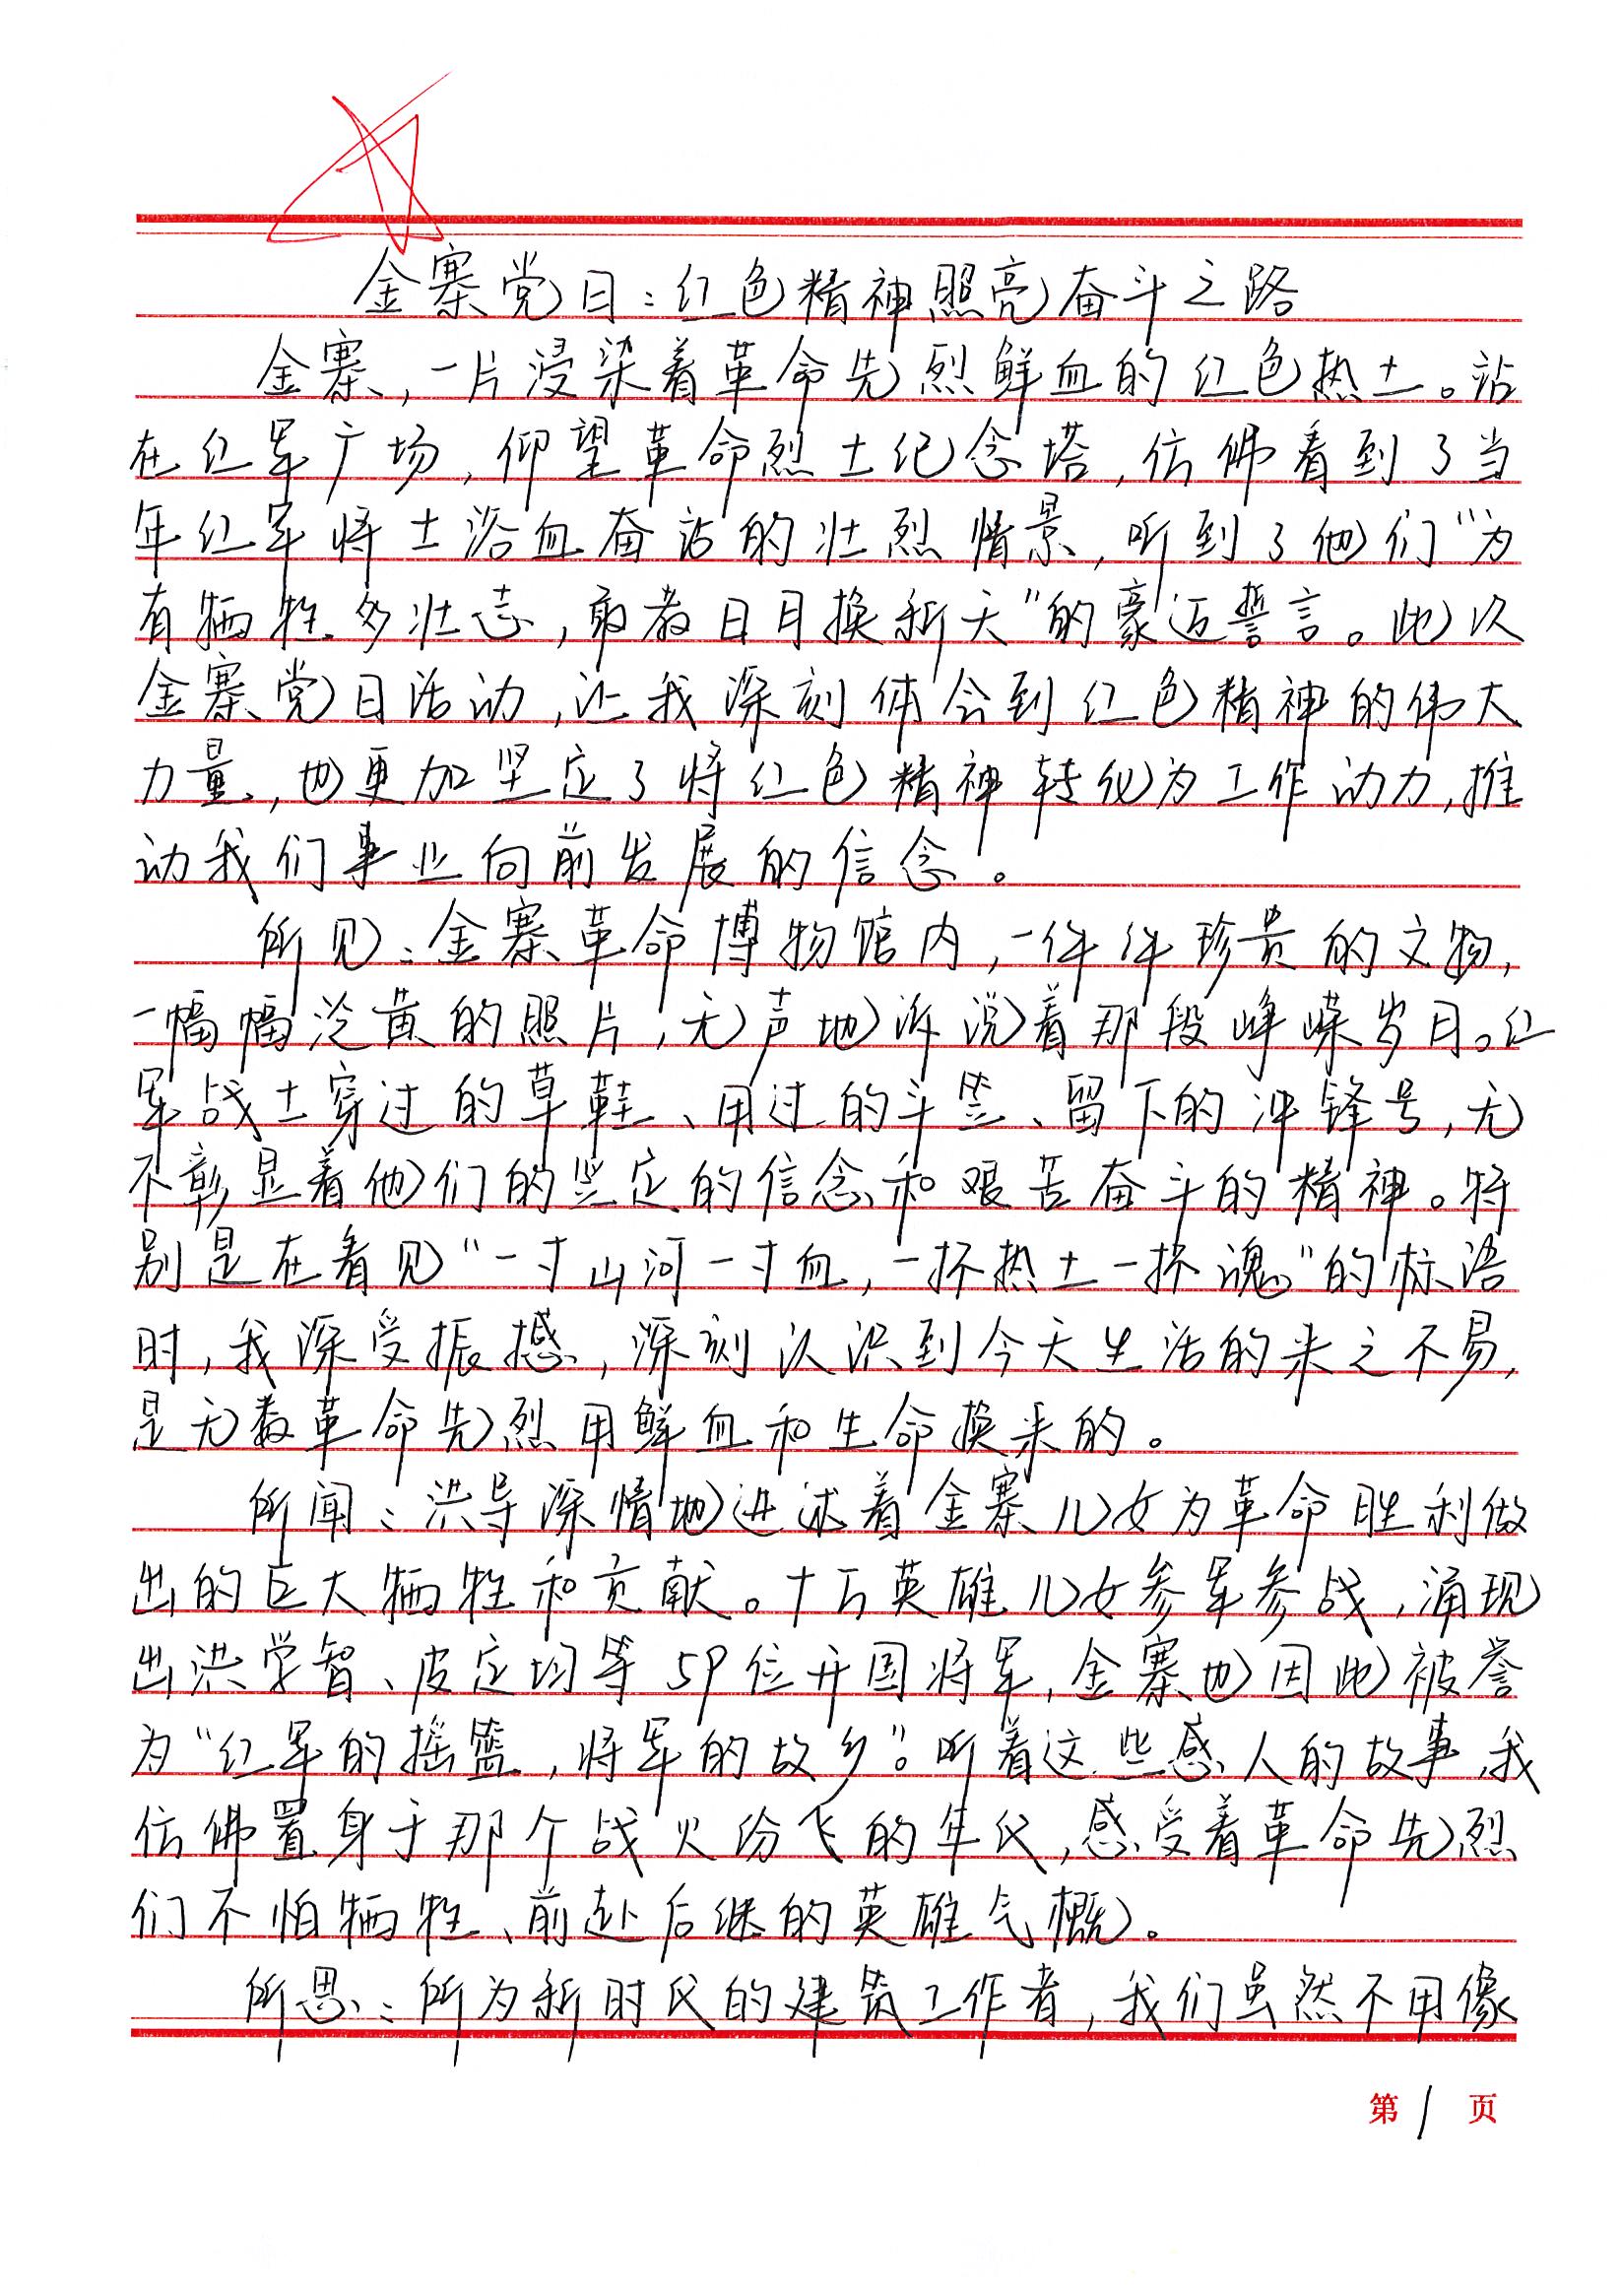 金寨党日：红色精神照亮奋斗之路
金寨，一片浸染着革命先烈鲜血的红色热土。站
在红军广场，仰望革命烈士纪念塔，仿佛看到了当
年红军将士浴血奋站的壮烈情景，听到了他们“为
有牺牲多壮志，敢教日月换新天”的豪迈誓言。此次
金寨党日活动，让我深刻体会到红色精神的伟大
力量，也更加坚定了将红色精神转化为工作动力，推
动我们事业向前发展的信念。
所见：金寨革命博物馆内，一件件珍贵的文物，
一幅幅泛黄的照片，无声地诉说着那段峥嵘岁日。红
军战士穿过的草鞋、用过的斗笠、留下的冲锋号，无
不彰显着他们的坚定的信念和艰苦奋斗的精神。特
别是在看见“一寸山河一寸血，一抔热土一抔魂”的标语
时，我深受振撼，深刻认识到今天生活的来之不易，
是无数革命先烈用鲜血和生命换来的。
所闻：洪导深情地讲述着金寨儿女为革命胜利做
出的巨大牺牲和贡献。十万英雄儿女参军参战，涌现
出洪学智、皮定均等59位开国将军，金寨也因此被誉
为“红军的摇篮，将军的故乡”。听着这些感人的故事，我
仿佛置身于那个战火纷飞的年代，感受着革命先烈
们不怕牺牲、前赴后继的英雄气概。
所思：所为新时代的建筑工作者，我们虽然不用像
第1页